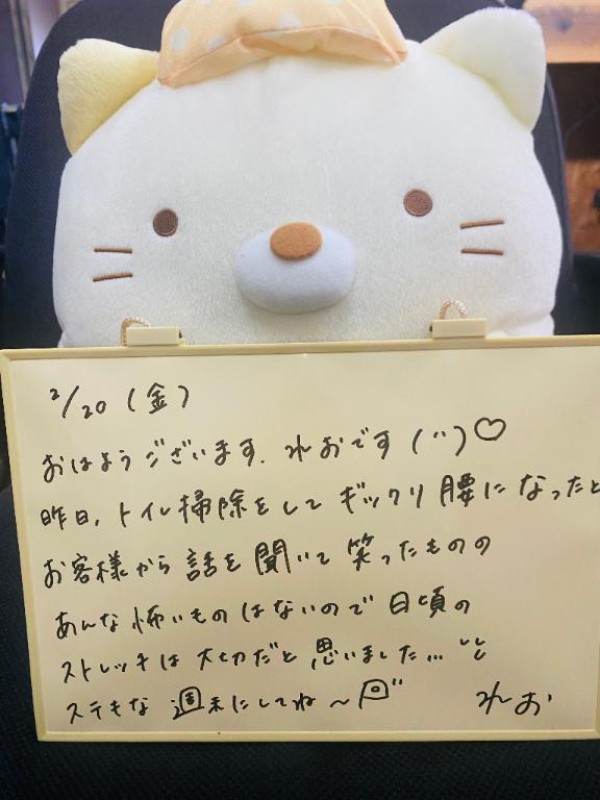 2/20(金)
おはようございます.れおです(¨)♡
昨日,トイレ掃除をしてギックリ腰になったと
お客様から話を聞いて笑ったものの
あんな怖いものはないので日頃の
ストレッチは大切だと思いました...
ステキな週末にしてね〜
れお